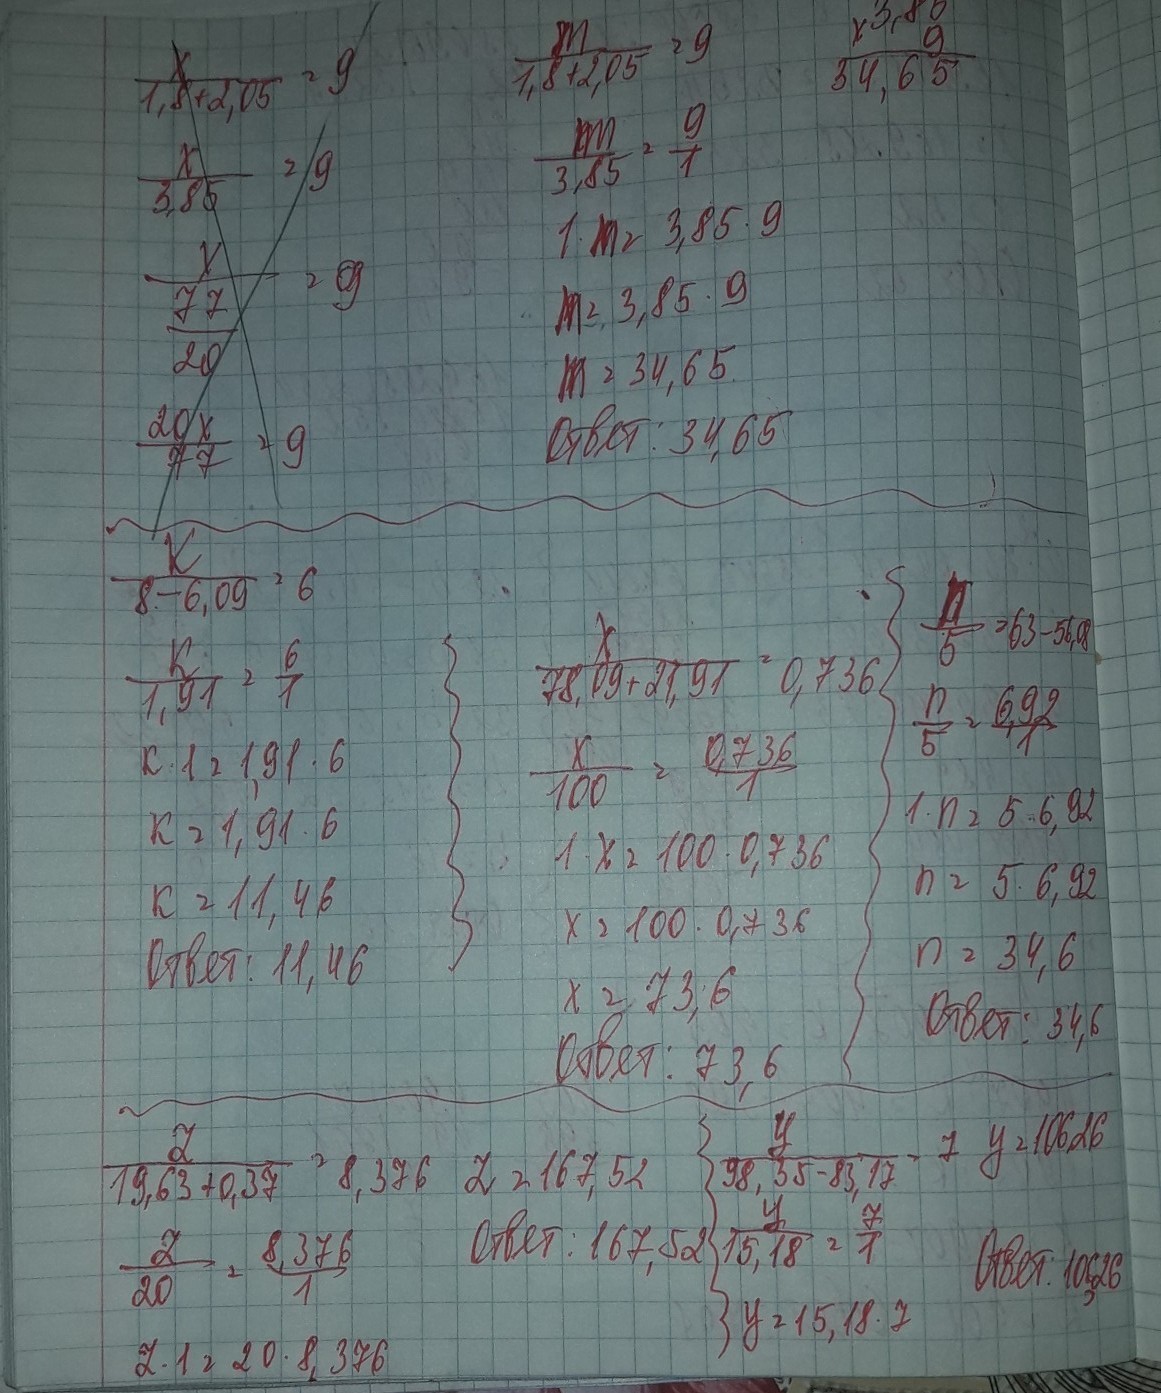 x/(1,8+2,05) = 9
x/3,85 = 9
x/(77/20) = 9
20x/77 = 9
m/(1,8+2,05) = 9
m/3,85 = 9/1
1·m = 3,85·9
m = 3,85·9
m = 34,65
Ответ: 34,65
x 3,85
9
34,65
к/(8-6,09) = 6
к/1,91 = 6/1
к·1 = 1,91·6
к = 1,91·6
к = 11,46
Ответ: 11,46
x/(78,09+21,91) = 0,736
x/100 = 0,736/1
1·x = 100·0,736
x = 100·0,736
x = 73,6
Ответ: 73,6
n/5 = 63-56,08
n/5 = 6,92/1
1·n = 5·6,92
n = 5·6,92
n = 34,6
Ответ: 34,6
z/(19,63+0,37) = 8,376
z/20 = 8,376/1
z·1 = 20·8,376
z = 167,52
Ответ: 167,52
y/(98,35-83,17) = 7
y/15,18 = 7/1
y = 15,18·7
y = 106,26
Ответ: 106,26